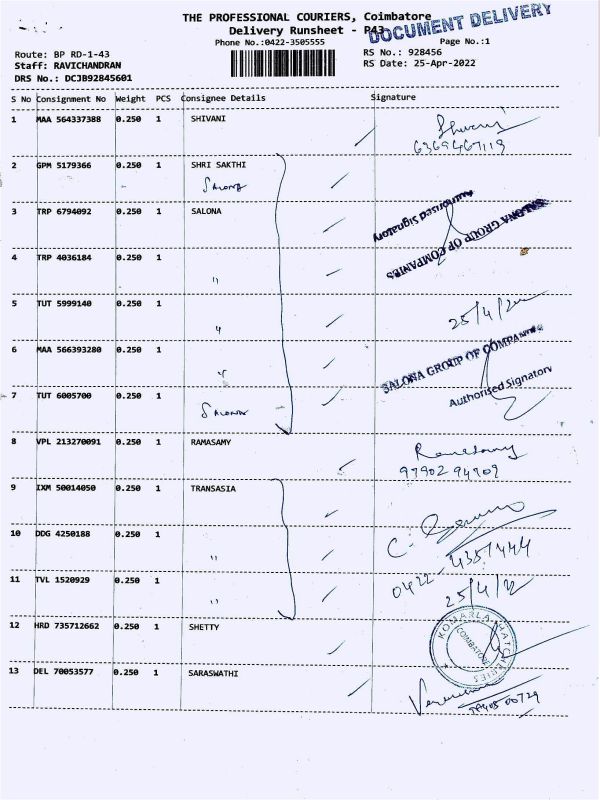 THE PROFESSIONAL COURIERS, Coimbatore
DOCUMENT DELIVERY
Delivery Runsheet - P43
Phone No.:0422-3505555
Page No.:1
Route: BP RD-1-43
RS No.: 928456
Staff: RAVICHANDRAN
RS Date: 25-Apr-2022
DRS No.: DCJB92845601
S No Consignment No Weight PCS Consignee Details Signature
1 MAA 564337388 0.250 1 SHIVANI
2 GPM 5179366 0.250 1 SHRI SAKTHI
SALONA
3 TRP 6794092 0.250 1 SALONA
Authorised Signatory
SALONA GROUP OF COMPANIES
4 TRP 4036184 0.250 1
"
5 TUT 5999140 0.250 1
"
25/4/22
6 MAA 566393280 0.250 1
"
SALONA GROUP OF COMPANIES
Authorised Signatory
7 TUT 6005700 0.250 1
SALONA
8 VPL 213270091 0.250 1 RAMASAMY
Ramasamy
97902 94909
9 IXM 50014050 0.250 1 TRANSASIA
10 DDG 4250188 0.250 1
"
0422-4357444
11 TVL 1520929 0.250 1
"
25/4/22
12 HRD 735712662 0.250 1 SHETTY
KOMARLA HATCHERIES
COIMBATORE
13 DEL 70053577 0.250 1 SARASWATHI